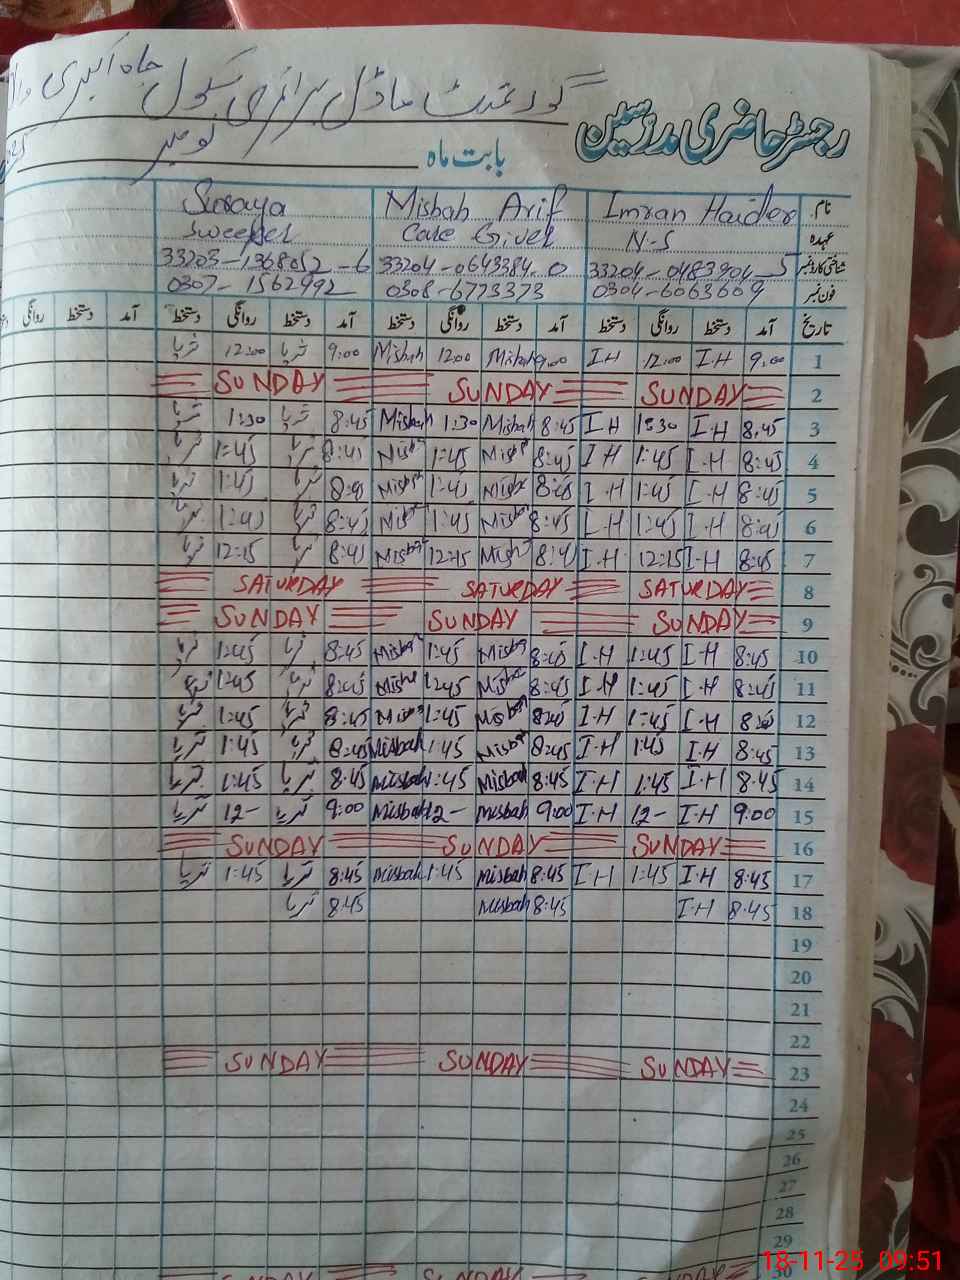 گورنمنٹ ماڈل پرائمری سکول چاہ اکبری والا
رجسٹر حاضری مدرسین
بابت ماہ نومبر
نام Imran Haider Misbah Arif Suraya
عہدہ N-S Care Giver Sweeper
شناختی کارڈ نمبر 33204-0483904-5 33204-0643384-0 33203-1368052-6
فون نمبر 0304-6063609 0308-6773373 0307-1562992
تاریخ آمد دستخط روانگی دستخط آمد دستخط روانگی دستخط آمد دستخط روانگی دستخط آمد دستخط روانگی
1 9:00 I H 12:00 I H 9:00 Misbah 12:00 Misbah 9:00 ثریا 12:00 ثریا
2 SUNDAY SUNDAY SUNDAY
3 8:45 I H 1:30 I H 8:45 Misbah 1:30 Misbah 8:45 ثریا 1:30 ثریا
4 8:45 I.H 1:45 I H 8:45 Misbah 1:45 Misbah 8:45 ثریا 1:45 ثریا
5 8:45 I.H 1:45 I.H 8:45 Misbah 1:45 Misbah 8:45 ثریا 1:45 ثریا
6 8:45 I.H 1:45 I.H 8:45 Misbah 1:45 Misbah 8:45 ثریا 1:45 ثریا
7 8:45 I.H 12:15 I.H 8:45 Misbah 12:15 Misbah 8:45 ثریا 12:15 ثریا
8 SATURDAY SATURDAY SATURDAY
9 SUNDAY SUNDAY SUNDAY
10 8:45 I.H 1:45 I.H 8:45 Misbah 1:45 Misbah 8:45 ثریا 1:45 ثریا
11 8:45 I.H 1:45 I.H 8:45 Misbah 1:45 Misbah 8:45 ثریا 1:45 ثریا
12 8:45 I.H 1:45 I.H 8:45 Misbah 1:45 Misbah 8:45 ثریا 1:45 ثریا
13 8:45 I.H 1:45 I.H 8:45 Misbah 1:45 Misbah 8:45 ثریا 1:45 ثریا
14 8:45 I.H 1:45 I.H 8:45 Misbah 1:45 Misbah 8:45 ثریا 1:45 ثریا
15 9:00 I.H 12- I.H 9:00 Misbah 12- Misbah 9:00 ثریا 12- ثریا
16 SUNDAY SUNDAY SUNDAY
17 8:45 I.H 1:45 I.H 8:45 Misbah 1:45 Misbah 8:45 ثریا 1:45 ثریا
18 8:45 I.H 8:45 Misbah 8:45 ثریا
19
20
21
22
23 SUNDAY SUNDAY SUNDAY
24
25
26
27
28
29
30
18-11-25 09:51